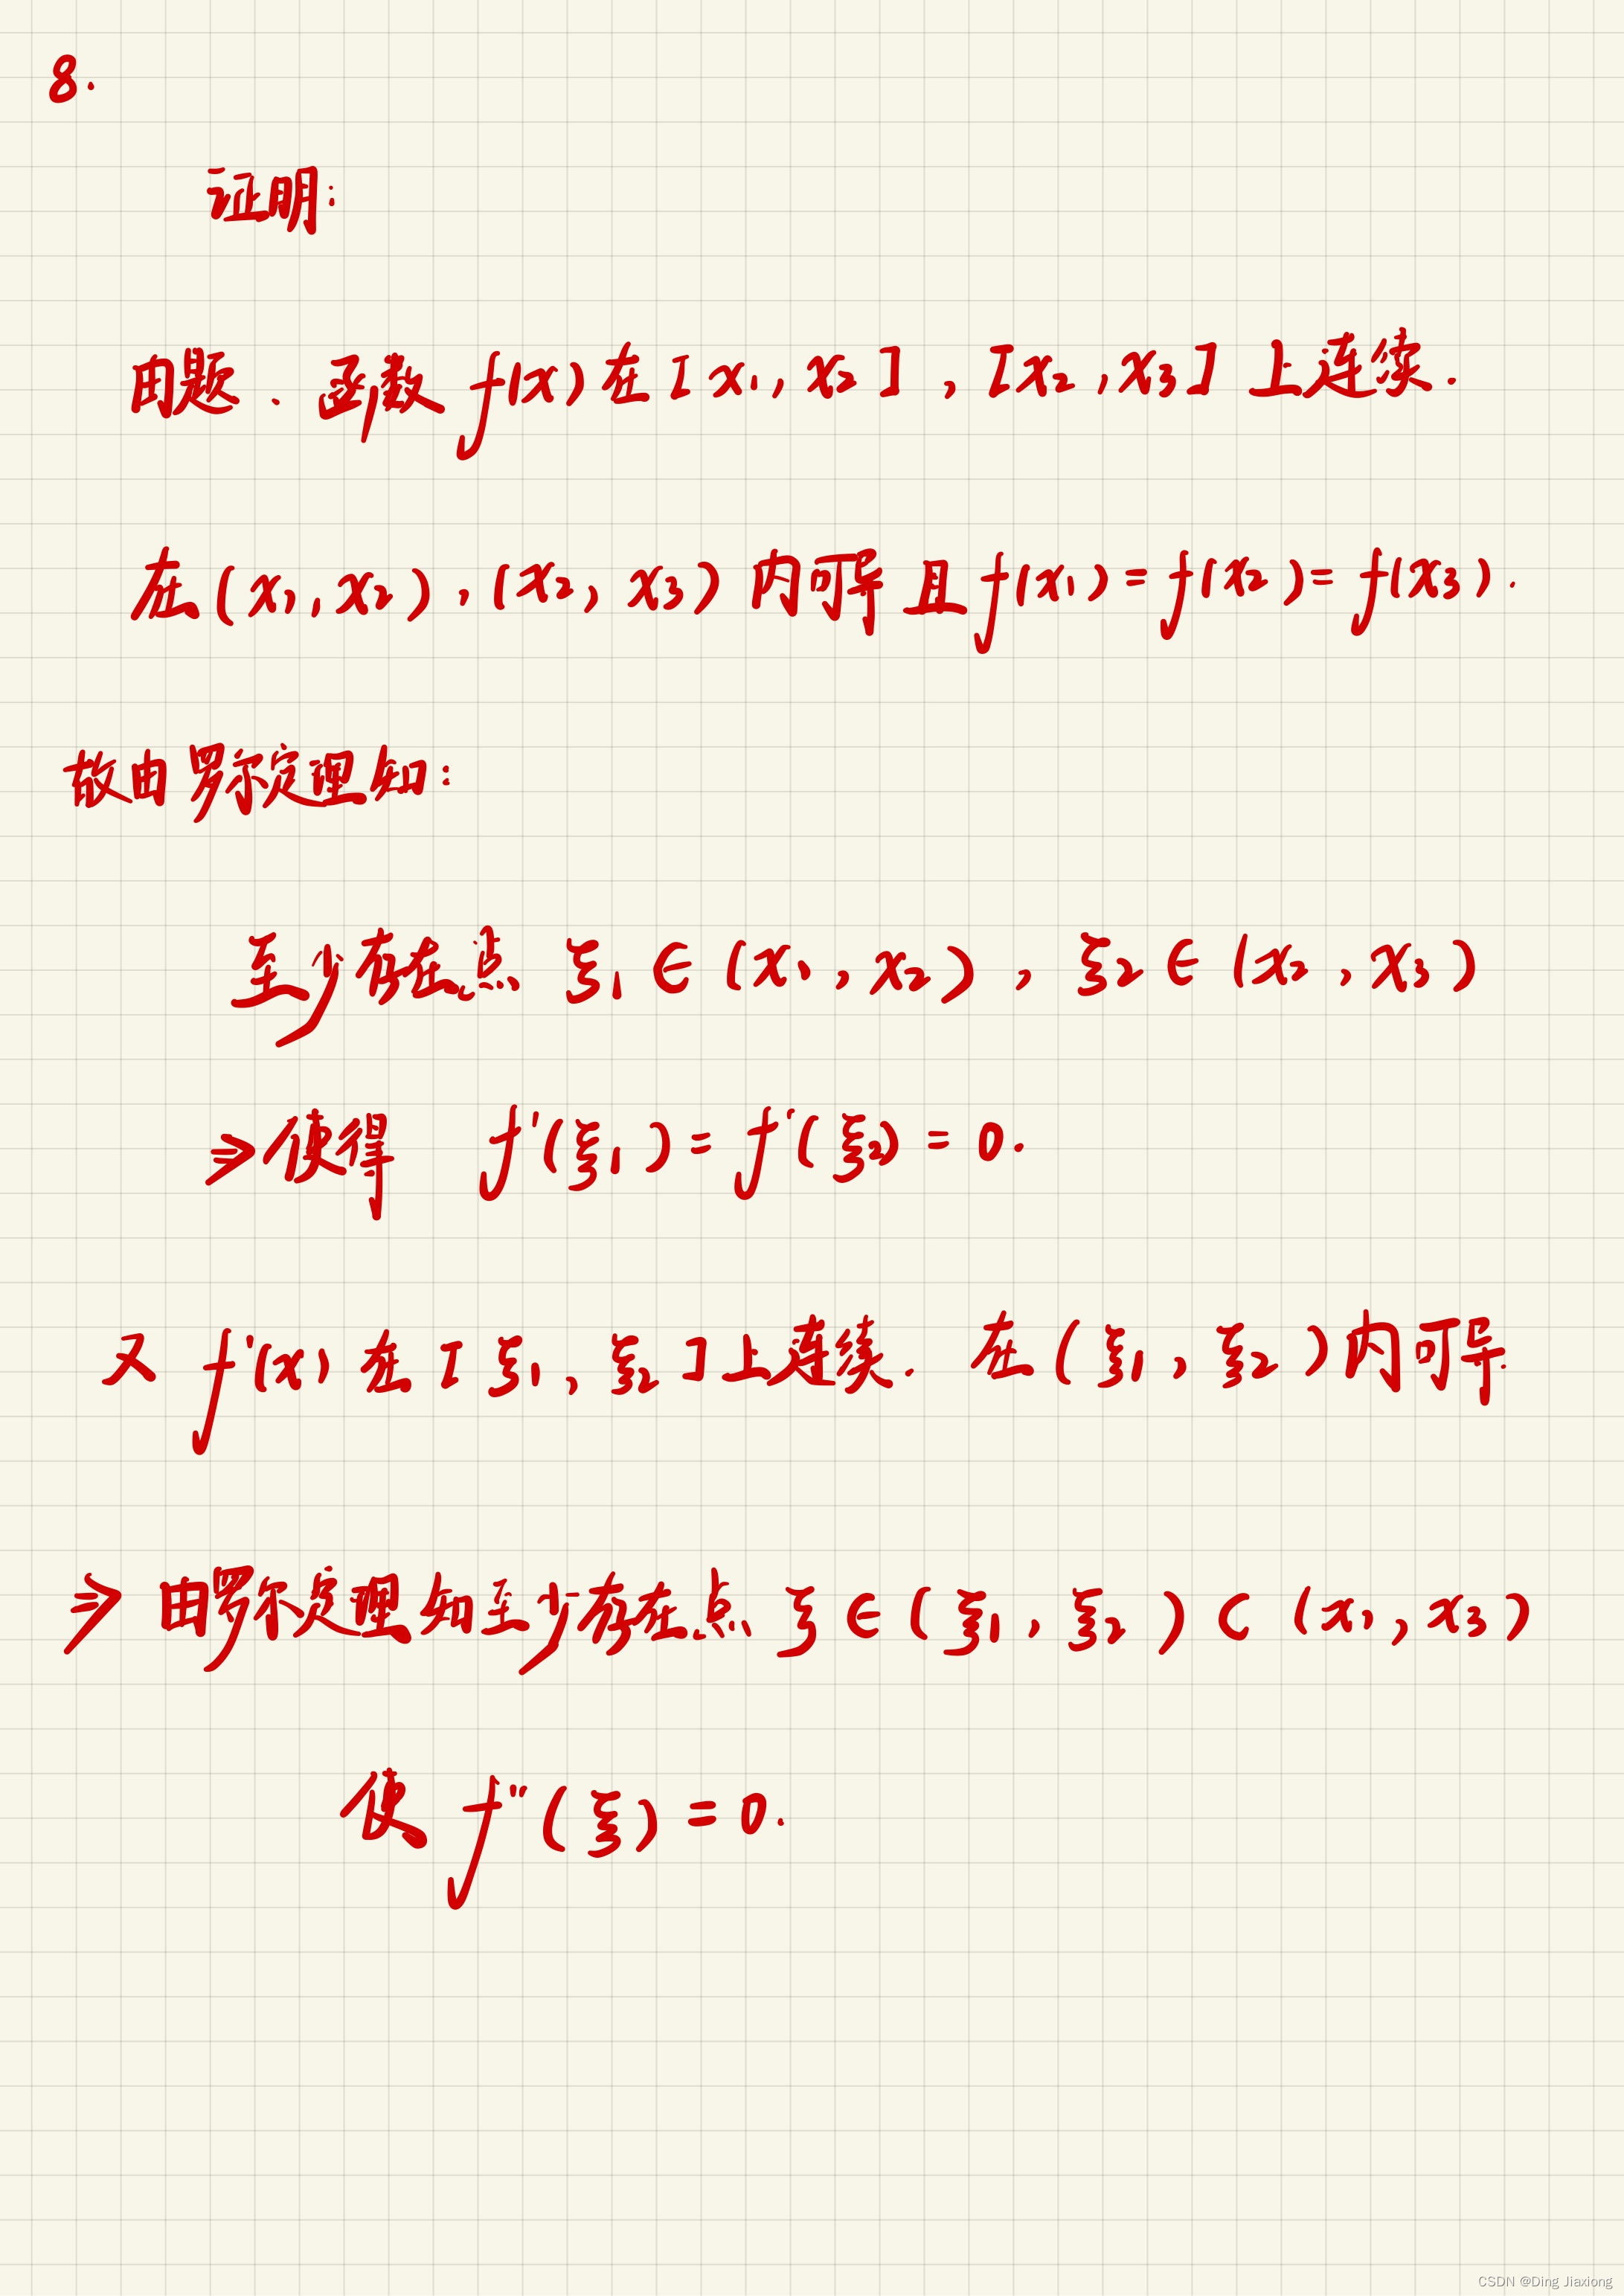 8.
证明:
由题、函数 f(x) 在 [x₁, x₂], [x₂, x₃] 上连续.
在 (x₁, x₂), (x₂, x₃) 内可导 且 f(x₁) = f(x₂) = f(x₃).
故由罗尔定理知:
至少存在点 ξ₁ ∈ (x₁, x₂), ξ₂ ∈ (x₂, x₃)
⇒ 使得 f'(ξ₁) = f'(ξ₂) = 0.
又 f'(x) 在 [ξ₁, ξ₂] 上连续. 在 (ξ₁, ξ₂) 内可导.
⇒ 由罗尔定理知至少存在点 ξ ∈ (ξ₁, ξ₂) ⊂ (x₁, x₃)
使 f''(ξ) = 0.
CSDN @Ding Jiaxiong